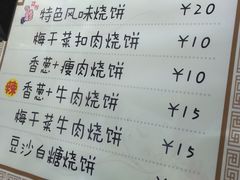 特色风味烧饼 ¥20
梅干菜扣肉烧饼 ¥10
香葱+瘦肉烧饼 ¥10
香葱+牛肉烧饼 ¥15
梅干菜牛肉烧饼 ¥15
豆沙白糖烧饼